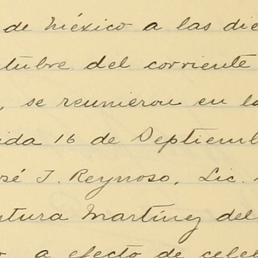 de México a las die
tubre del corriente
, se reunieron en la
ida 16 de Septiem
osé J. Reynoso, Lic.
ntura Martínez del
a efecto de cele